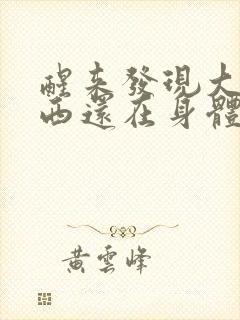 醒來發現大
西還在身體
黃雲峰